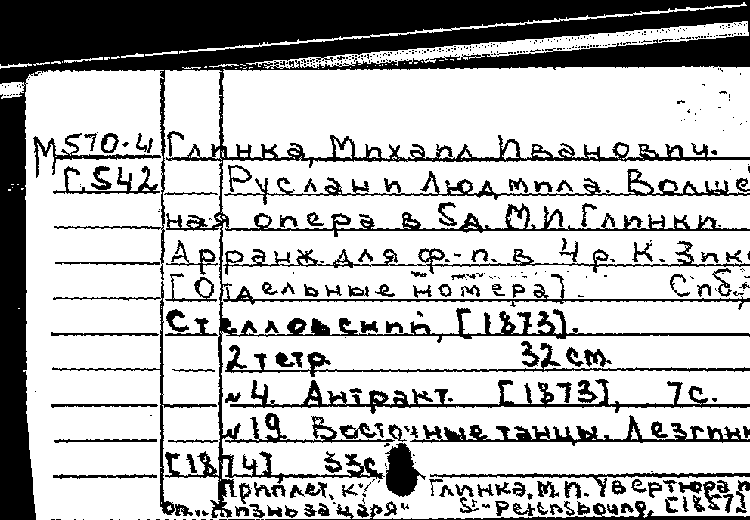 М 570.4 Глинка, Михаил Иванович.
Г.542 Руслан и Людмила. Волше
ная опера в 5д. М.И. Глинки
Арранж. для ф-п. в 4 р. К.
[Отдельные номера]. Спб.,
Стелловский, [1873].
2 тетр. 32 см.
№4. Антракт. [1873], 7с.
№19. Восточные танцы. Лезгинк
[1874], 33с
Приплет. к: Глинка, М.И. Увертюра
оп. "Жизнь за царя" St-Petersbourg, [1857]